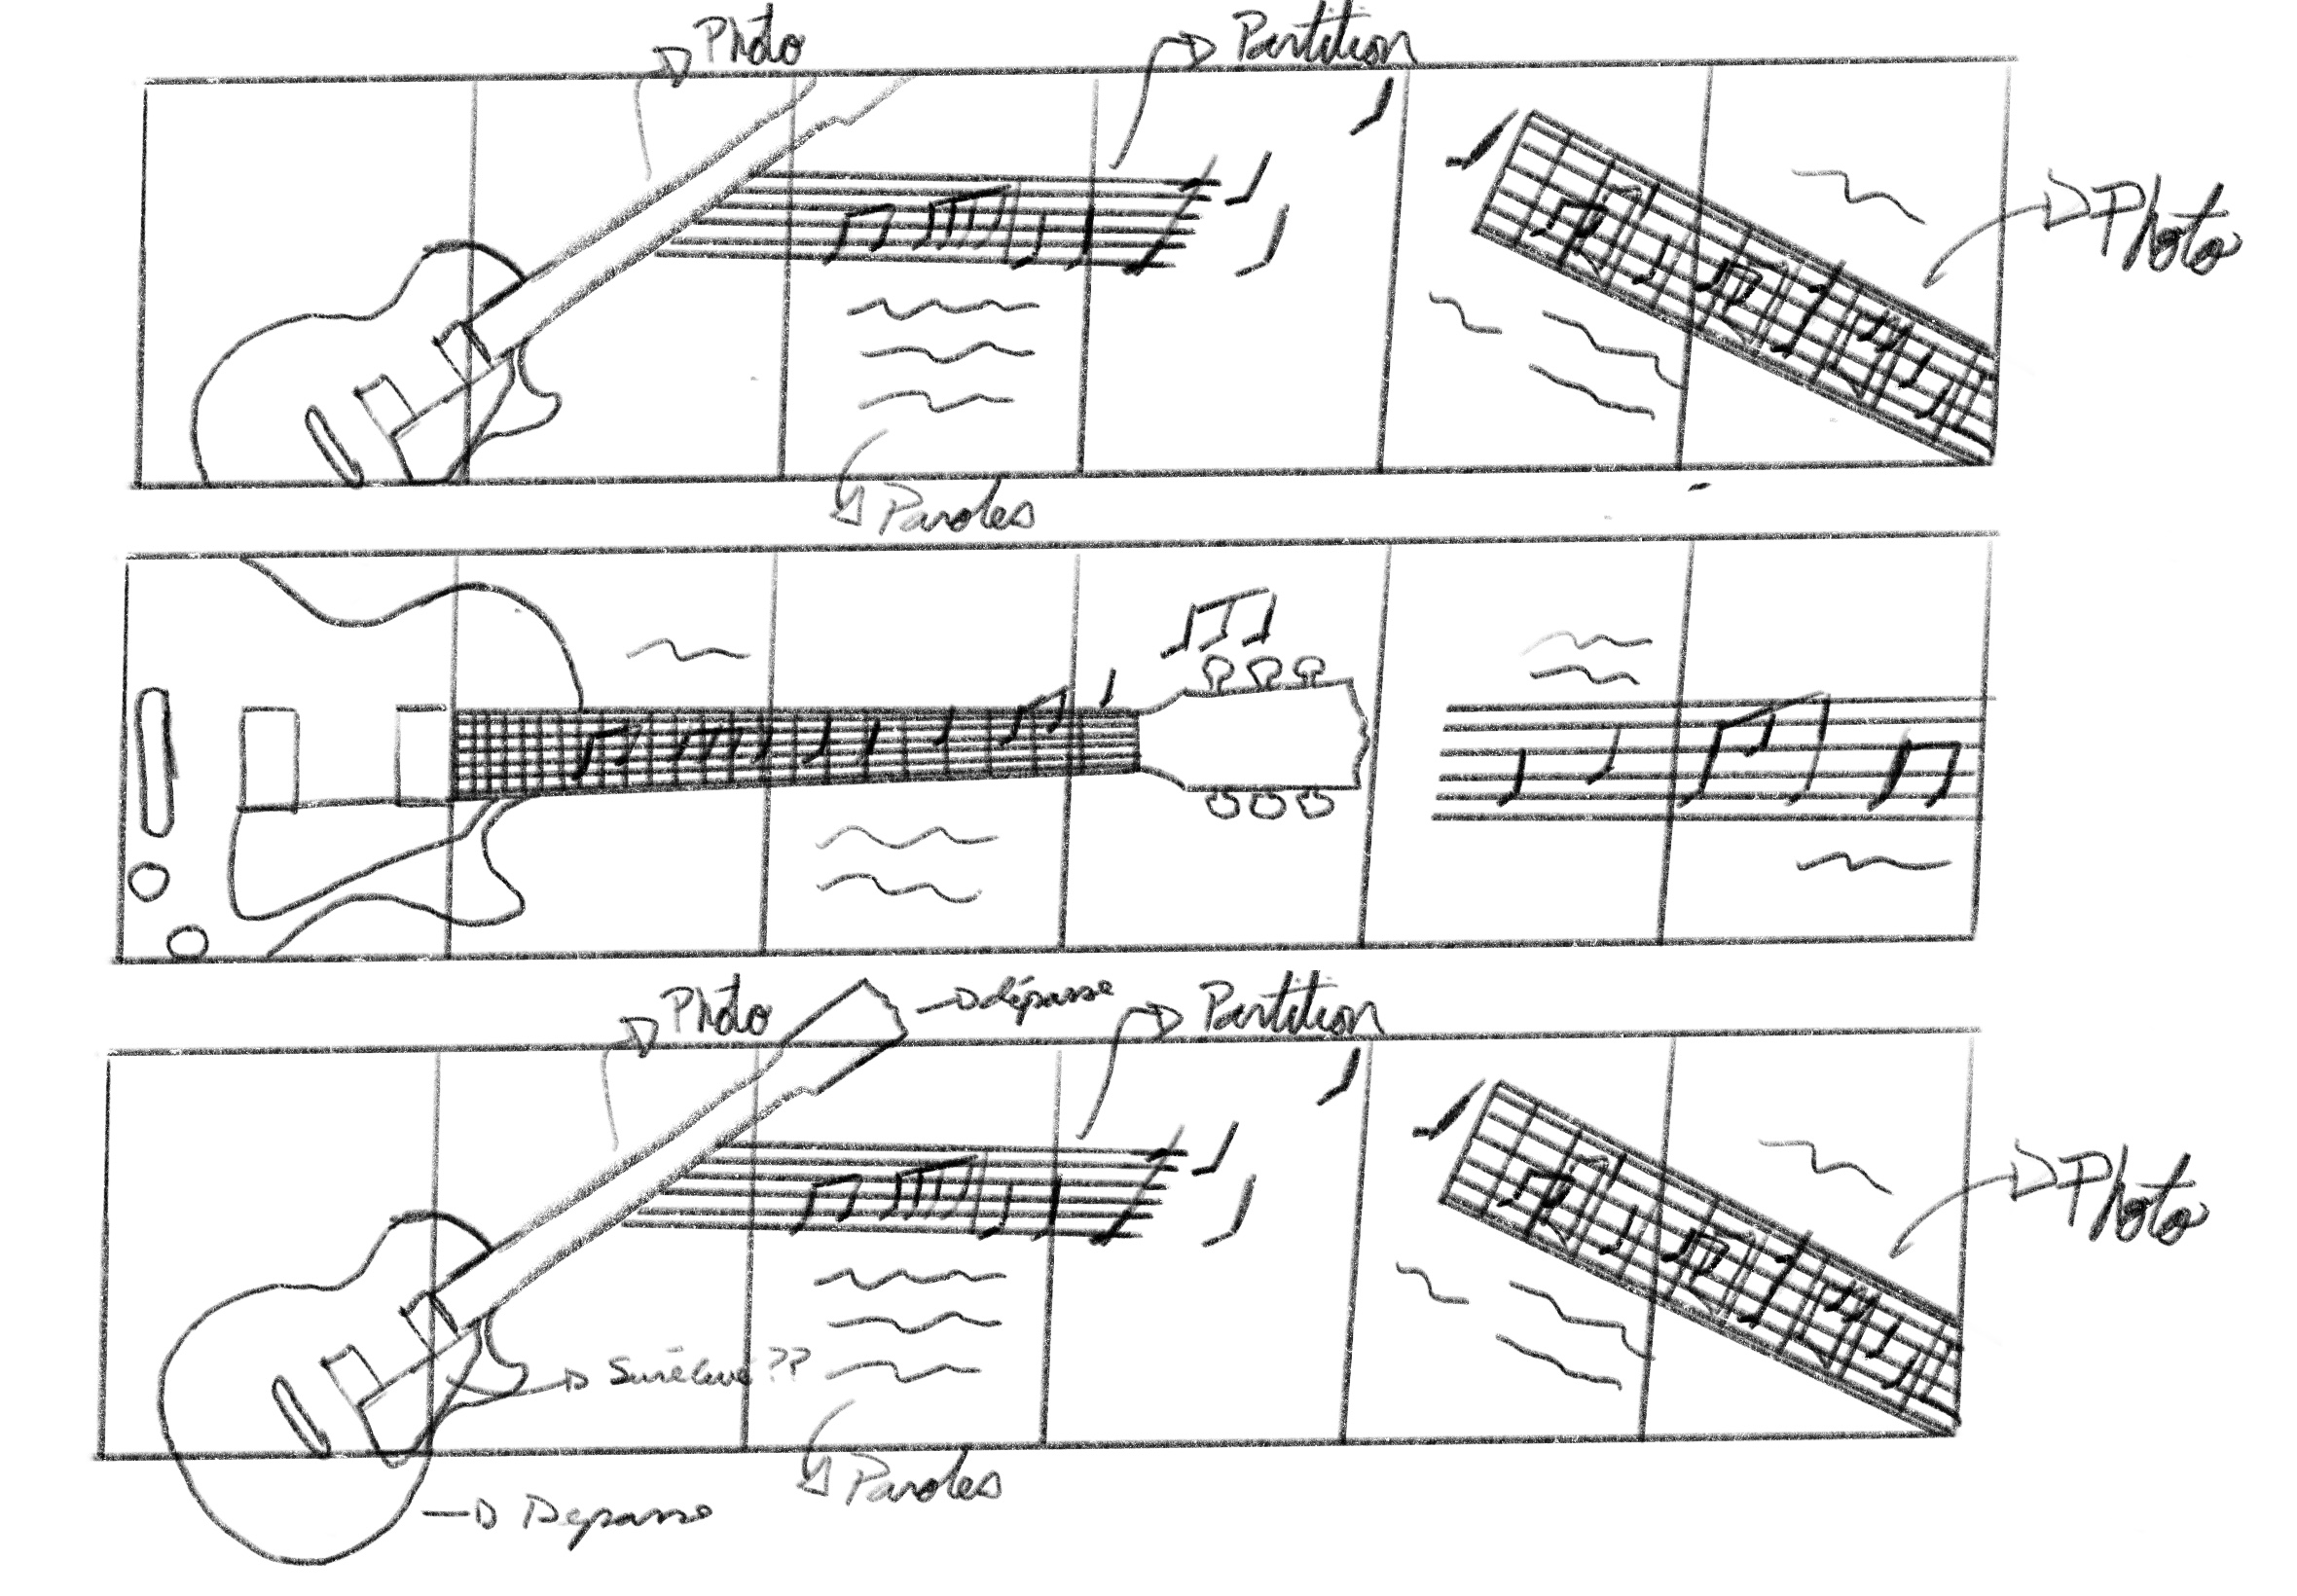 Photo
Partition
Photo
Paroles
Photo
dépasse
Partition
Photo
Surélevé ??
Paroles
Depasse